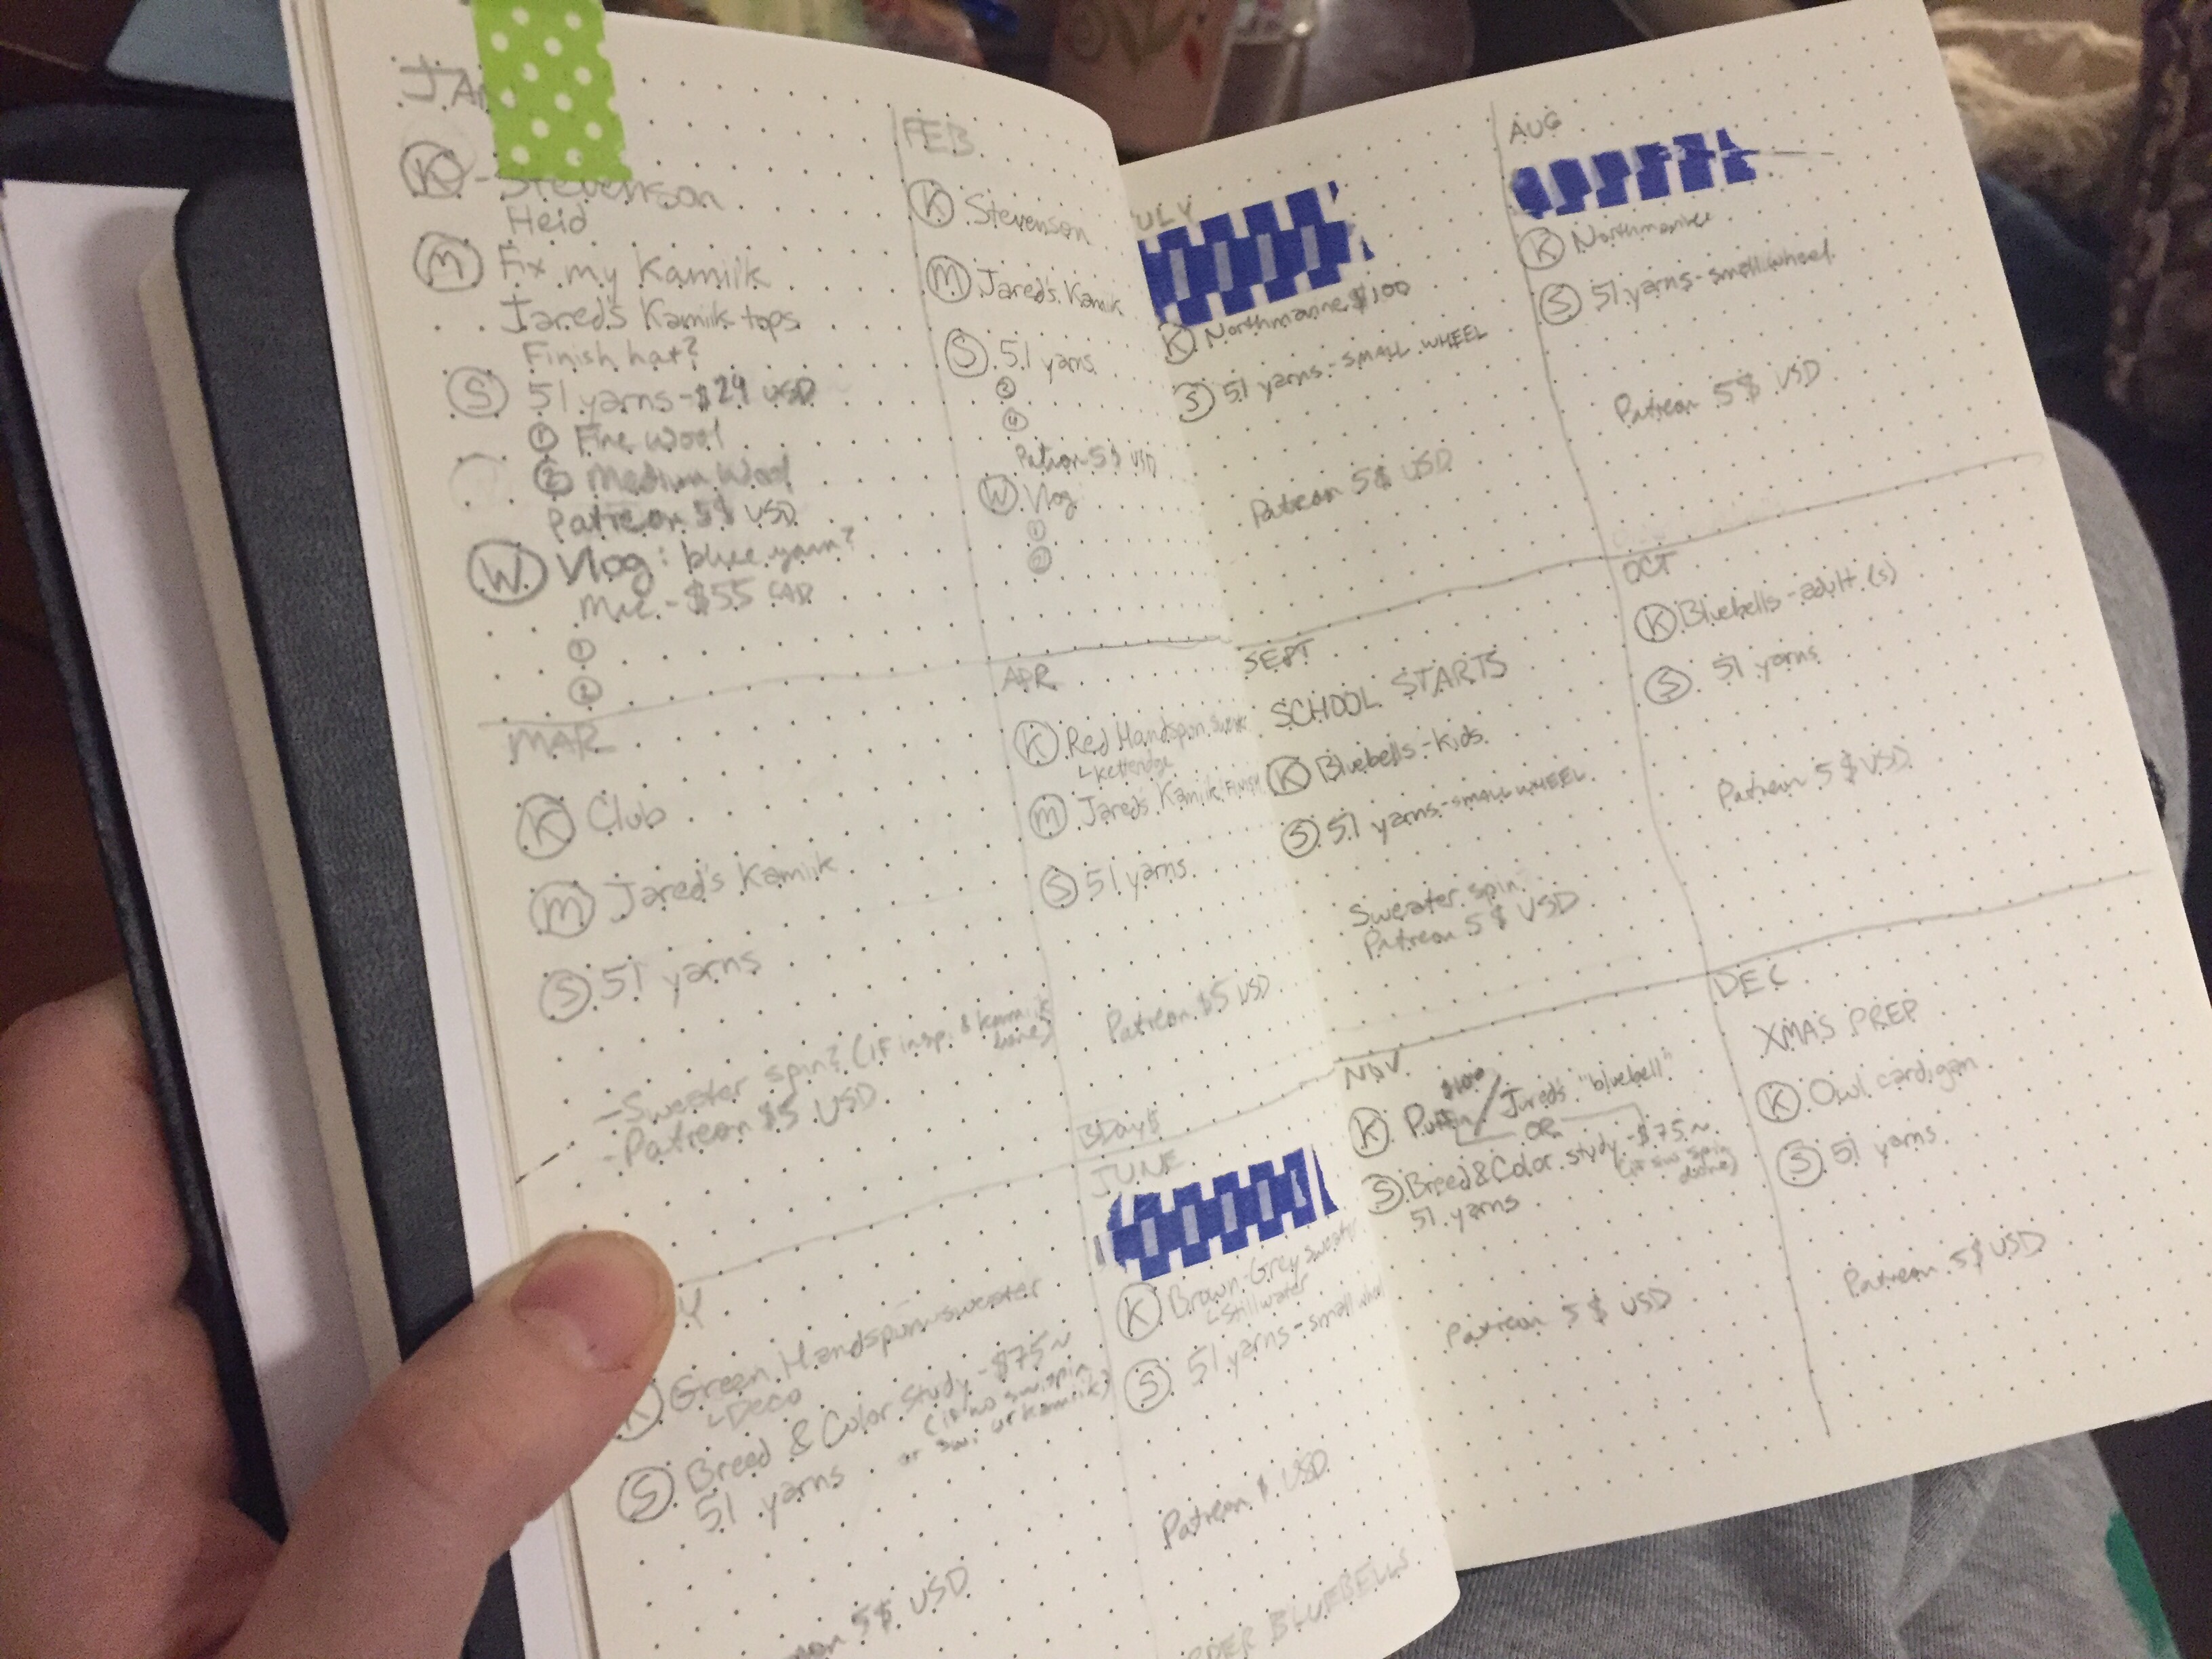 JAN
Ⓚ-Stevenson
Heid
Ⓜ Fix my Kamiik
Jared's Kamiik tops
Finish hat?
Ⓢ 51 yarns-$24 USD
① Fine Wool
② Medium Wool
Patreon 5$ USD
Ⓦ Vlog: blue yarn?
Mic-$55 CAD
①
②
FEB
Ⓚ Stevenson
Ⓜ Jared's Kamik
Ⓢ 51 yarns
③
④
Patreon 5$ USD
Ⓦ Vlog
①
②
MAR
Ⓚ Club
Ⓜ Jared's Kamiik
Ⓢ 51 yarns
-Sweater spin? (if insp. & kamiik
done)
-Patreon $5 USD
APR
Ⓚ Red Handspun
└Ketteridge
Ⓜ Jared's Kamiik FINISH
Ⓢ 51 yarns
Patreon $5 USD
BDays
Y
Ⓚ Green Handspun sweater
└Deco
Ⓢ Breed & Color Study-$75~
(if no sw. spin
or kamiik)
51 yarns
5$ USD
JUNE
Ⓚ Brown-Grey sweater
└Stillwater
Ⓢ 51 yarns-small wheel
Patreon $ USD
RDER BLUEBELLS
ULY
Ⓚ Northmavine $100
Ⓢ 51 yarns-SMALL WHEEL
Patreon 5$ USD
AUG
Ⓚ Northmavine
Ⓢ 51 yarns-small wheel
Patreon 5$ USD
SEPT
SCHOOL STARTS
Ⓚ Bluebells-kids
Ⓢ 51 yarns-SMALL WHEEL
Sweater spin
Patreon 5$ USD
OCT
Ⓚ Bluebells-adult(s)
Ⓢ 51 yarns
Patreon 5$ USD
NOV
$100
Ⓚ Puffin/Jared's "bluebell"
OR
Ⓢ Breed & Color study-$75~
(if sw spin
done)
51 yarns
Patreon 5$ USD
DEC
XMAS PREP
Ⓚ Owl cardigan
Ⓢ 51 yarns
Patreon 5$ USD